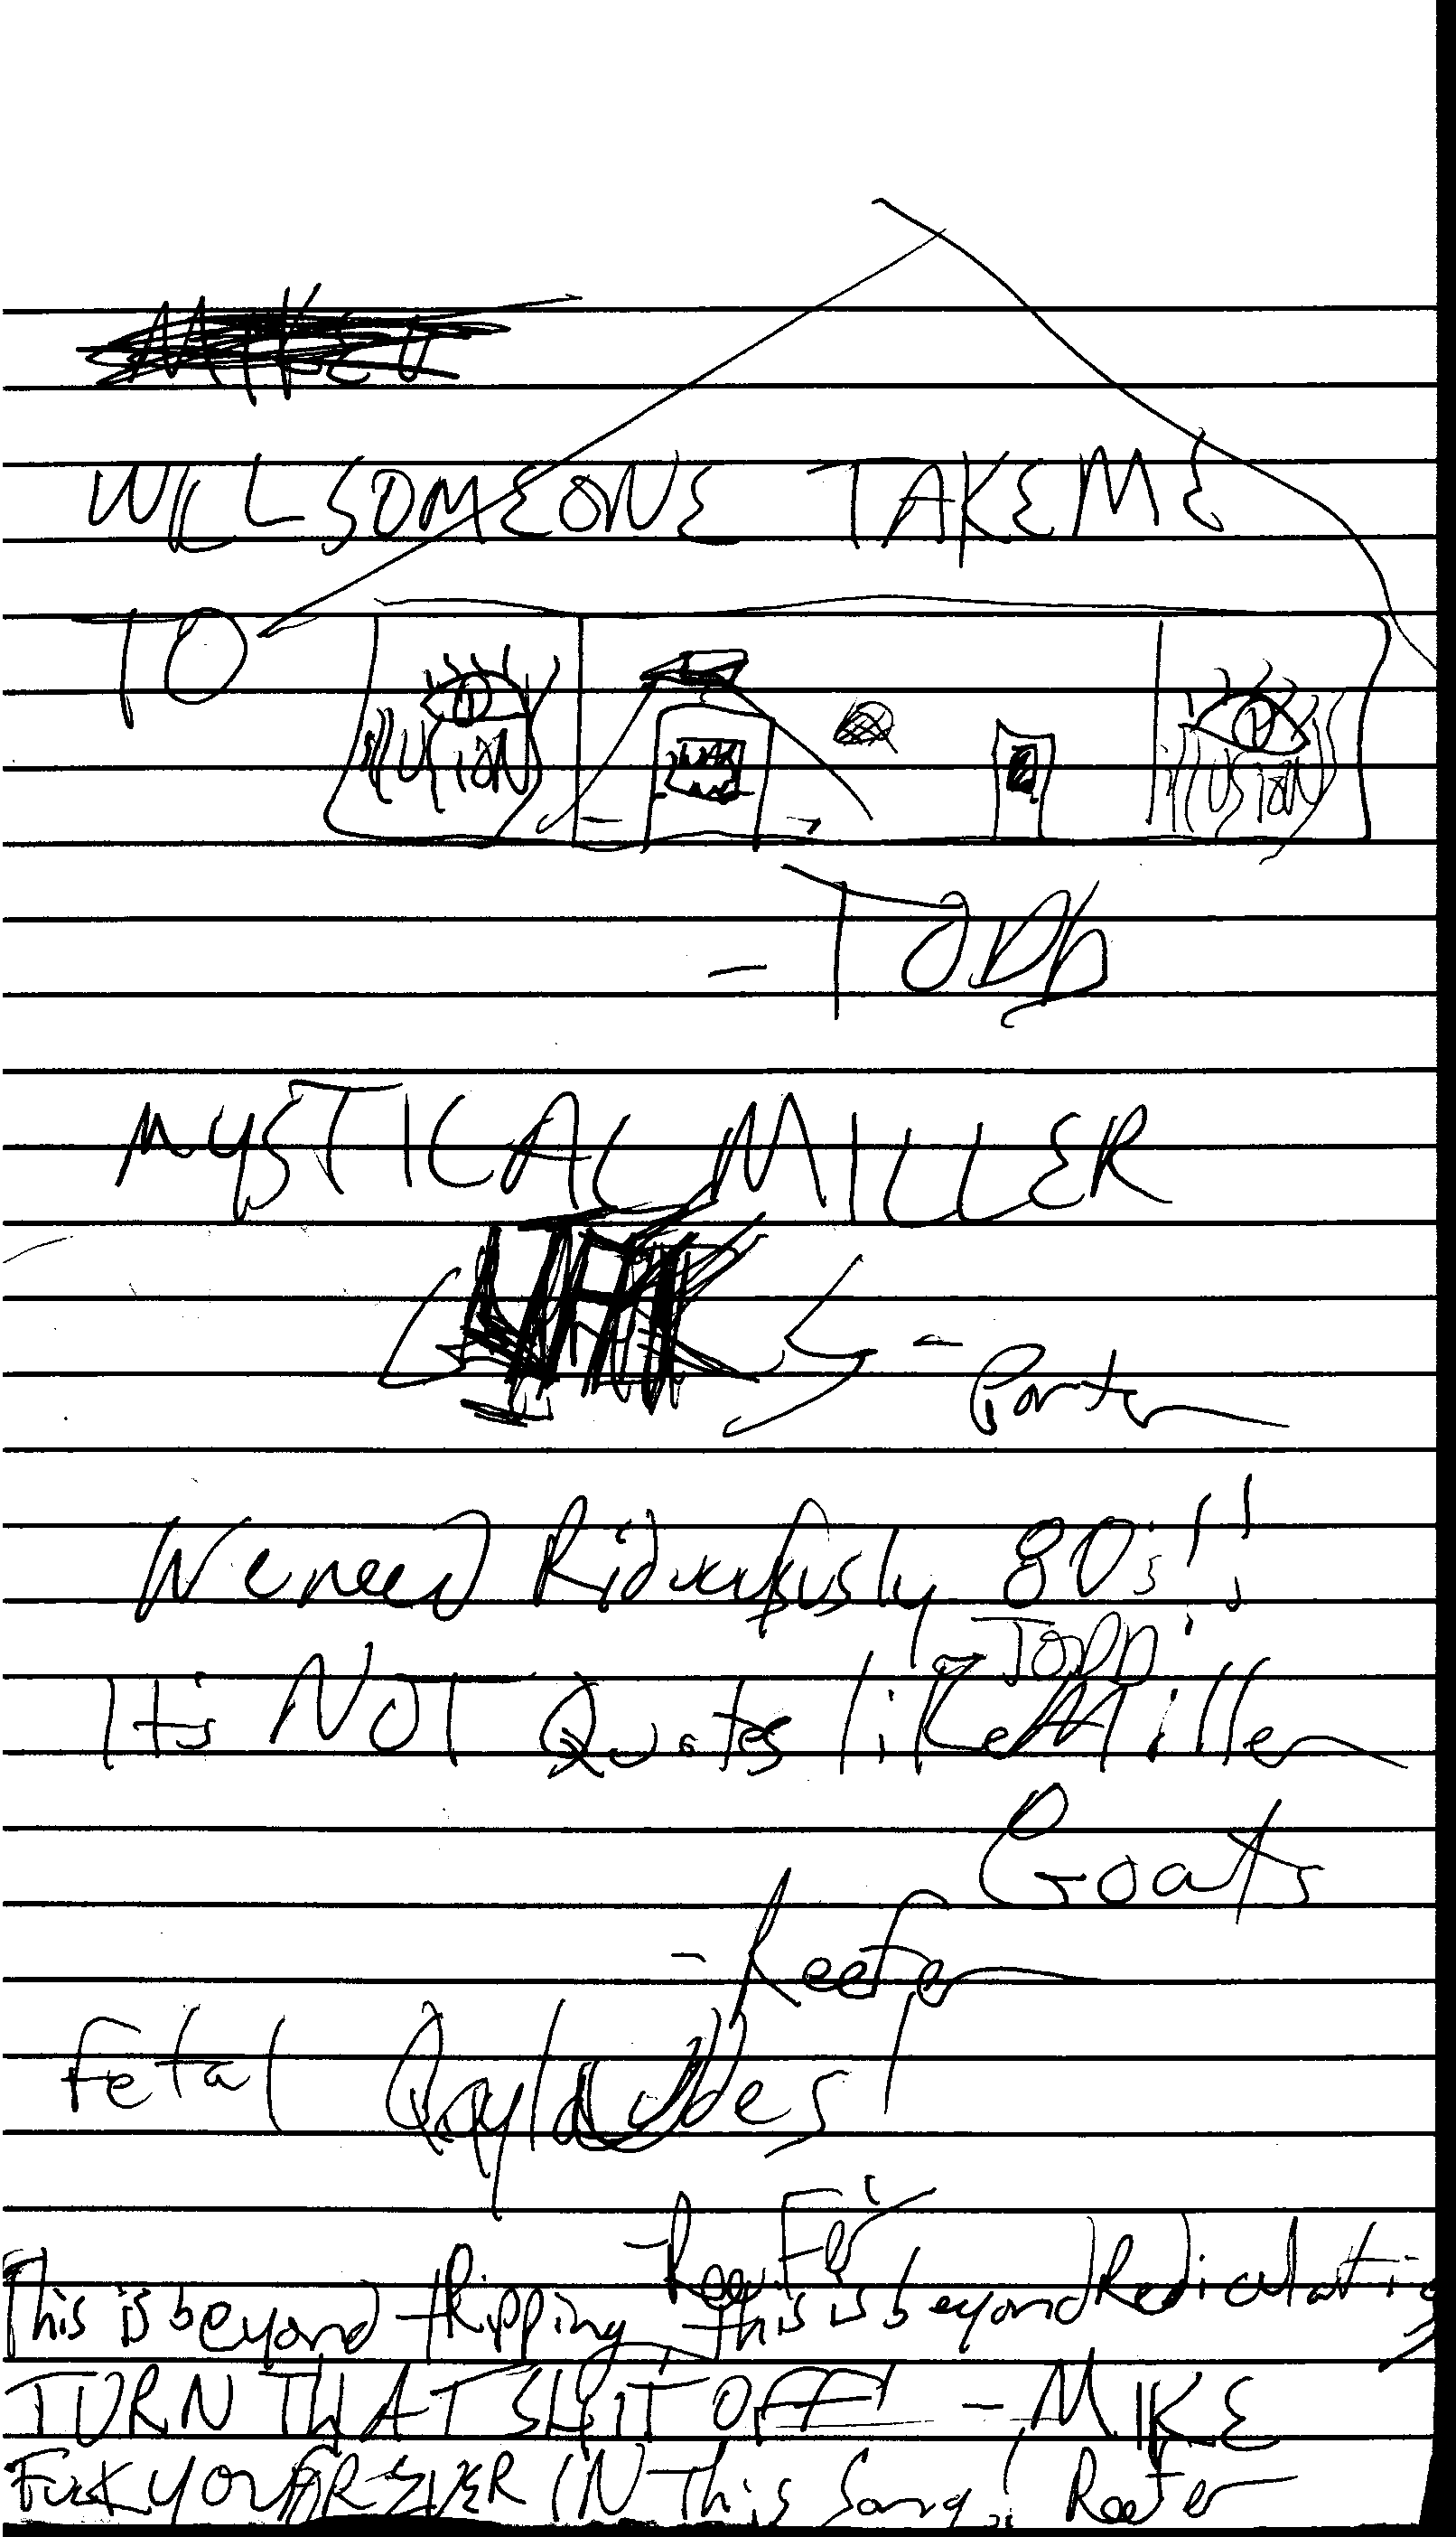 WILL SOMEONE TAKE ME
TO
Illusion
Illusion
- TODD
MYSTICAL MILLER
- Porter
We need Ridiculously 80's!!
- TODD
It's NOT Quotes like Miller
Goats
- Reefer
Fetal Qayludes!
- Reefer
This is beyond tripping, this is beyond Rediculatio
TURN THAT SHIT OFF! - MIKE
Fuck you FOREVER IN This Song! Reefer